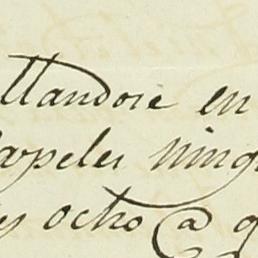 ttandose en
papeles ning
y ocho @ q